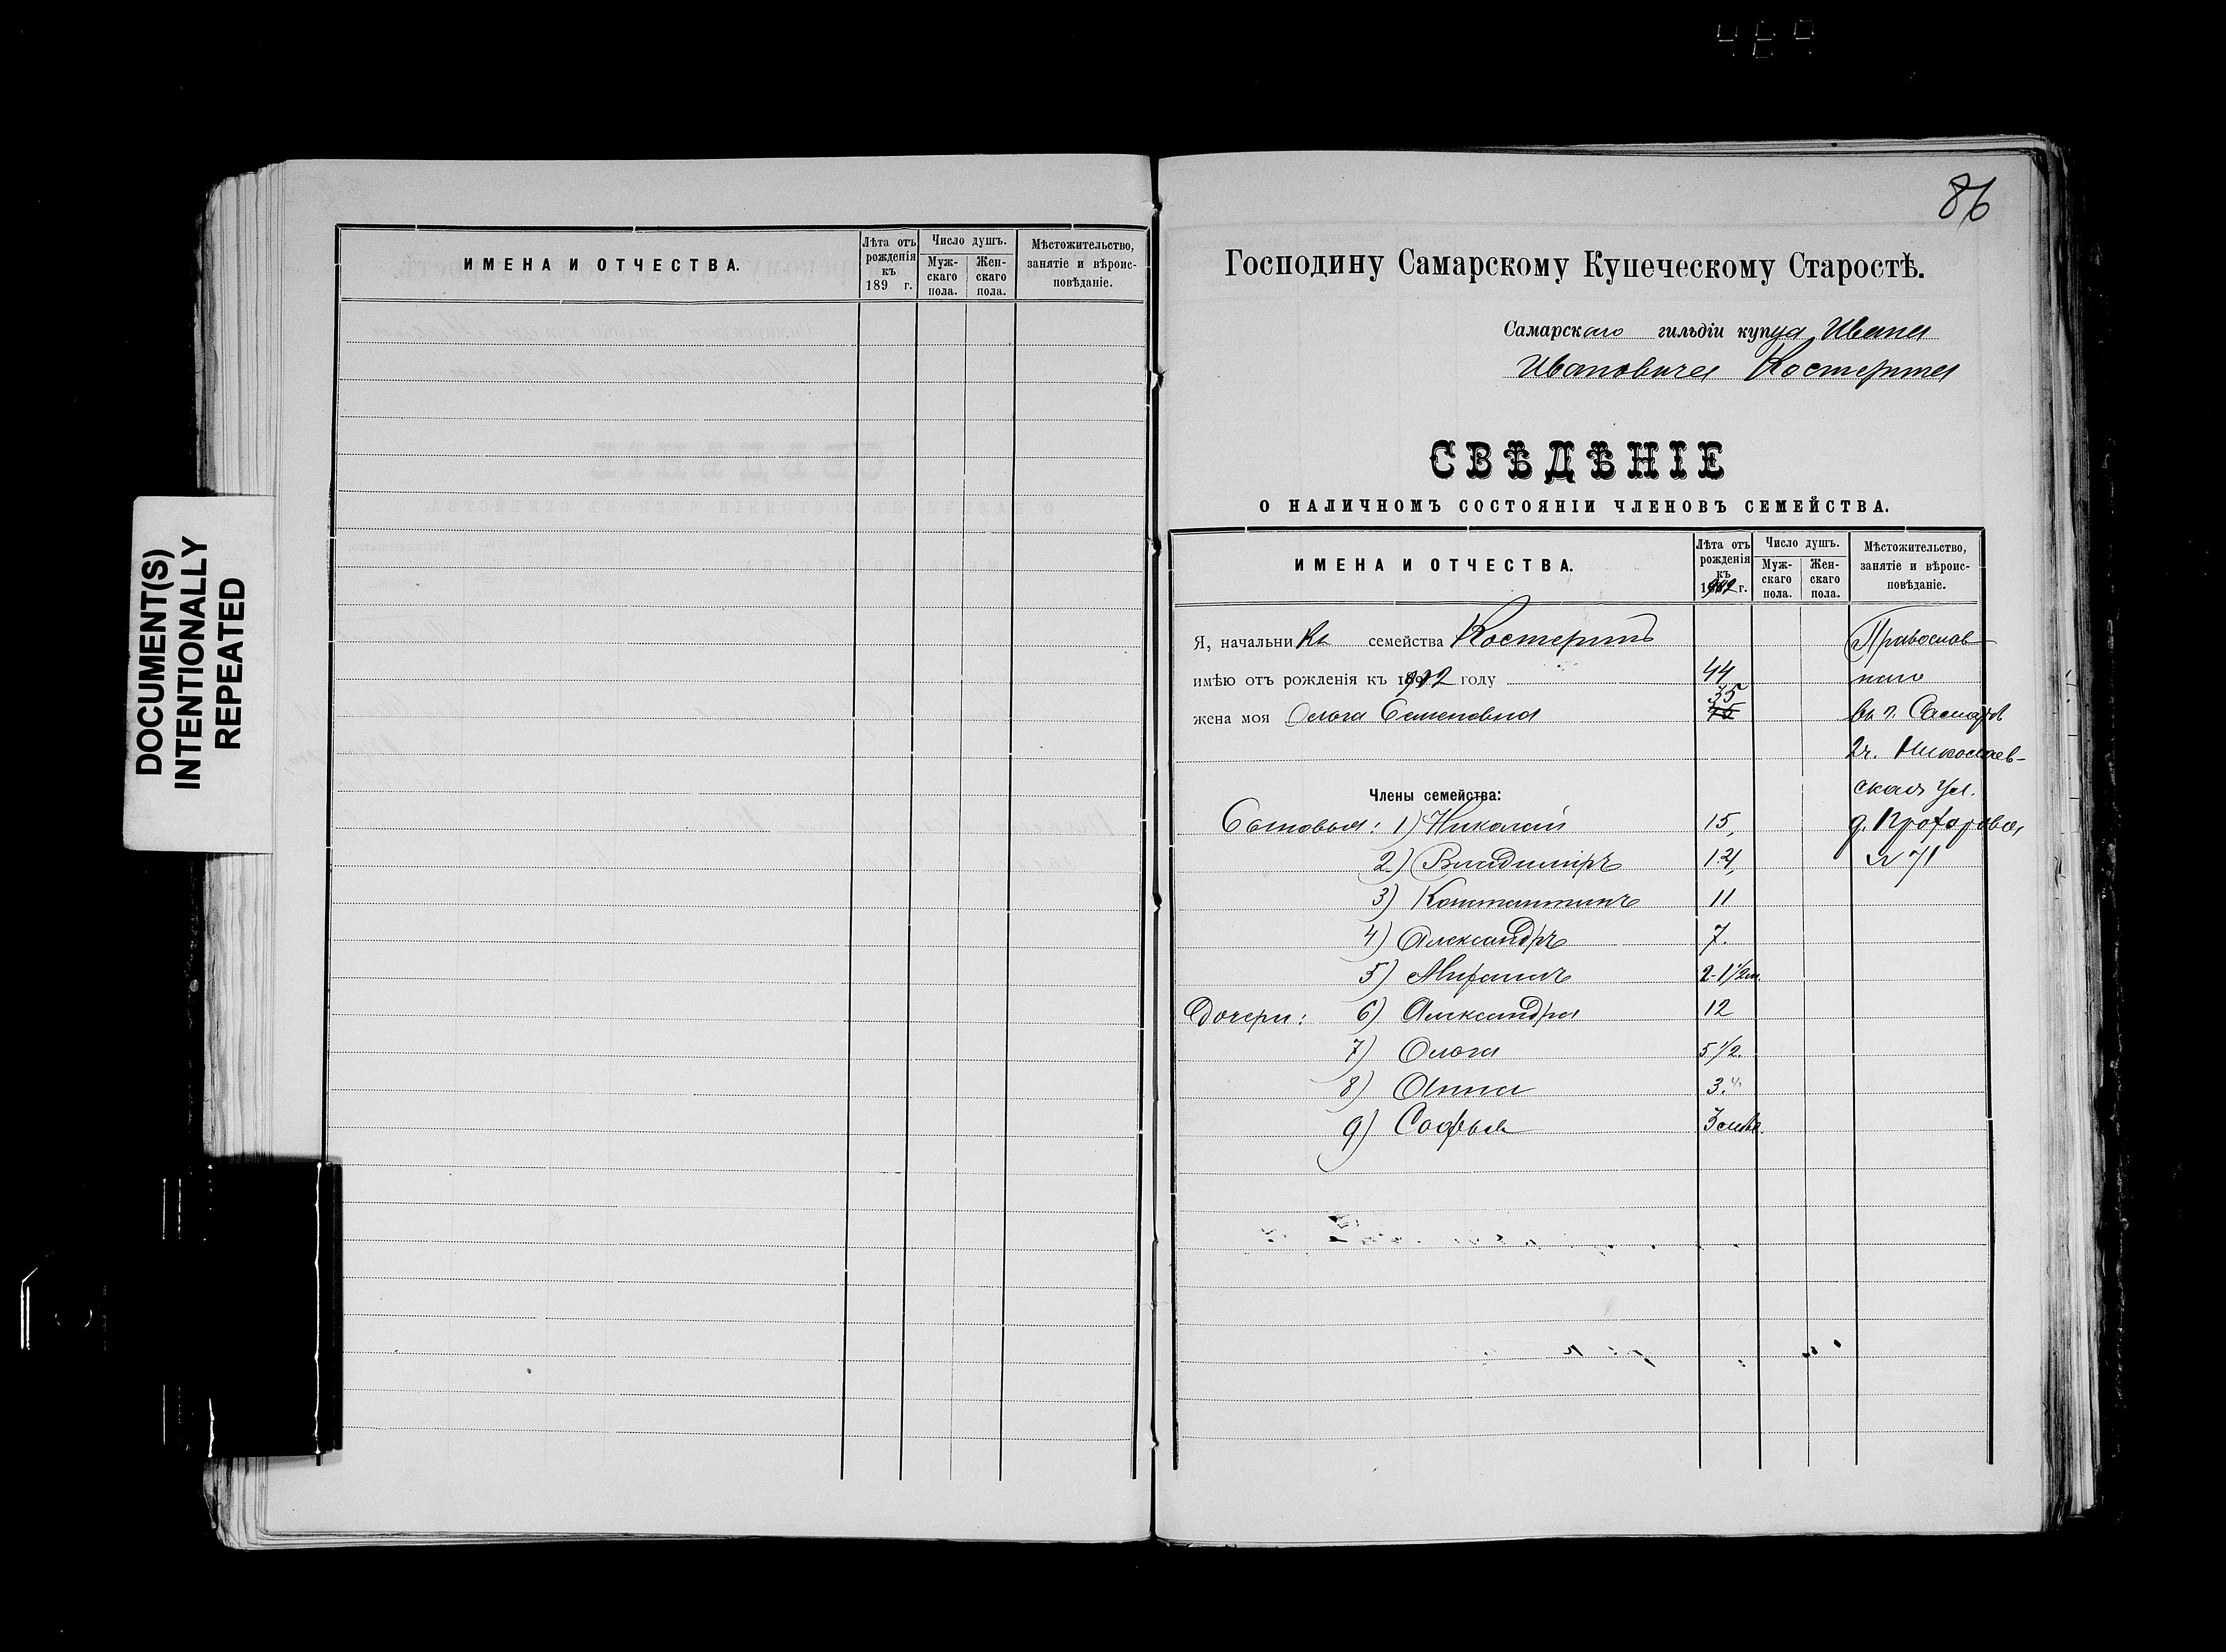 DOCUMENT(S)
INTENTIONALLY
REPEATED
ИМЕНА И ОТЧЕСТВА.
Лѣта отъ
рожденія
къ
189 г.
Число душъ.
Муж-
скаго
пола.
Жен-
скаго
пола.
Мѣстожительство,
занятіе и вѣроис-
повѣданіе.
86
Господину Самарскому Купеческому Старостѣ.
Самарскаго гильдіи купца Ивана
Ивановича Костерина
СВѢДѢНІЕ
О НАЛИЧНОМЪ СОСТОЯНІИ ЧЛЕНОВЪ СЕМЕЙСТВА.
ИМЕНА И ОТЧЕСТВА.
Лѣта отъ
рожденія
къ
1902 г.
Число душъ.
Муж-
скаго
пола.
Жен-
скаго
пола.
Мѣстожительство,
занятіе и вѣроис-
повѣданіе.
Я, начальникъ семейства Костеринъ Православ-
имѣю отъ рожденія къ 1902 году 44 наго
жена моя Ольга Семеновна 35 въ г. Самарѣ
2ч. Николаев-
ская ул.
Члены семейства:
Сыновья: 1) Николай 15, д. Прохорова
2) Владиміръ 14, № 71
3) Константинъ 11
4) Александръ 7.
5) Михаилъ 2-1 1/2 м.
Дочери: 6) Александра 12
7) Ольга 5 1/2.
8) Анна 3.
9) Софья